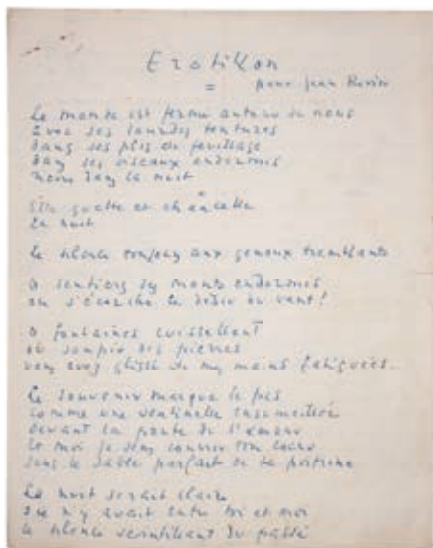 Erotikon
=
pour Jean
Le monde est fermé autour de nous
avec ses lourdes tentures
dans ses plis de feuillage
dans ses oiseaux endormis
nous dans la nuit
Elle guette et chancelle
la nuit
Le silence aux genoux tremblants
O sentiers des monts endormis
où s'écorche le désir du vent!
O fontaines ruisselant
au soupir des pierres
vous avez glissé de mes mains fatiguées.
Le souvenir marque le pas
comme une sentinelle ensommeillée
devant la porte de l'amour
Et moi je sens couvrir ton cœur
sous le sable parfait de ta poitrine
La nuit serait claire
s'il n'y avait entre toi et moi
le silence du passé